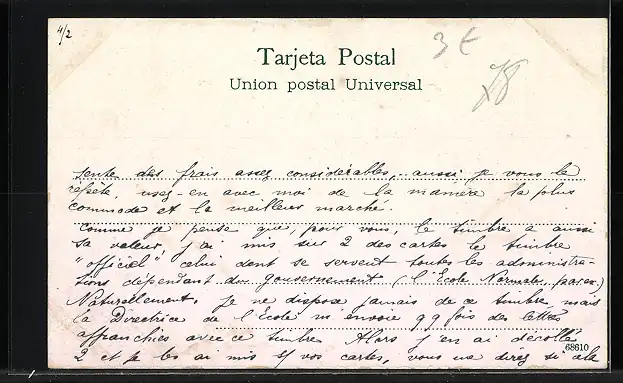 4/2
3 €
Tarjeta Postal
Union postal Universal
sente des frais assez considérables, aussi je vous le
répète, usez-en avec moi de la manière la plus
commode et la meilleur marché.
Comme je pense que, pour vous, le timbre a aussi
sa valeur, j'ai mis sur 2 des cartes le timbre
"officiel" celui dont se servent toutes les administra-
tions dépendant du gouvernement (l'École Normale, par ex.)
Naturellement, je ne dispose jamais de ce timbre, mais
la Directrice de l'École m'envoie qq fois des lettres
affranchies avec ce timbre. Alors j'en ai décollé
2 et je les ai mis s/ vos cartes, vous me direz si cela
68610